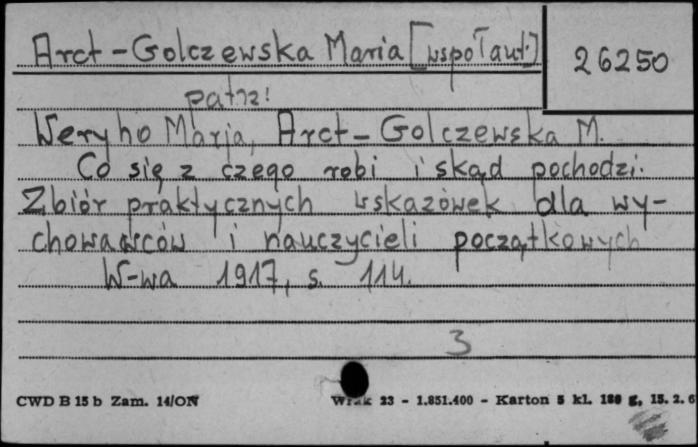 Arct-Golczewska Maria [współaut.]
26250
patrz!
Weryho Marja, Arct-Golczewska M.
Co się z czego robi i skąd pochodzi.
Zbiór praktycznych wskazówek dla wy-
chowawców i nauczycieli początkowych
W-wa 1917, s. 114.
3
CWD B 15 b Zam. 14/ON
23 - 1.851.400 - Karton 5 kl. 180 g, 15. 2. 6